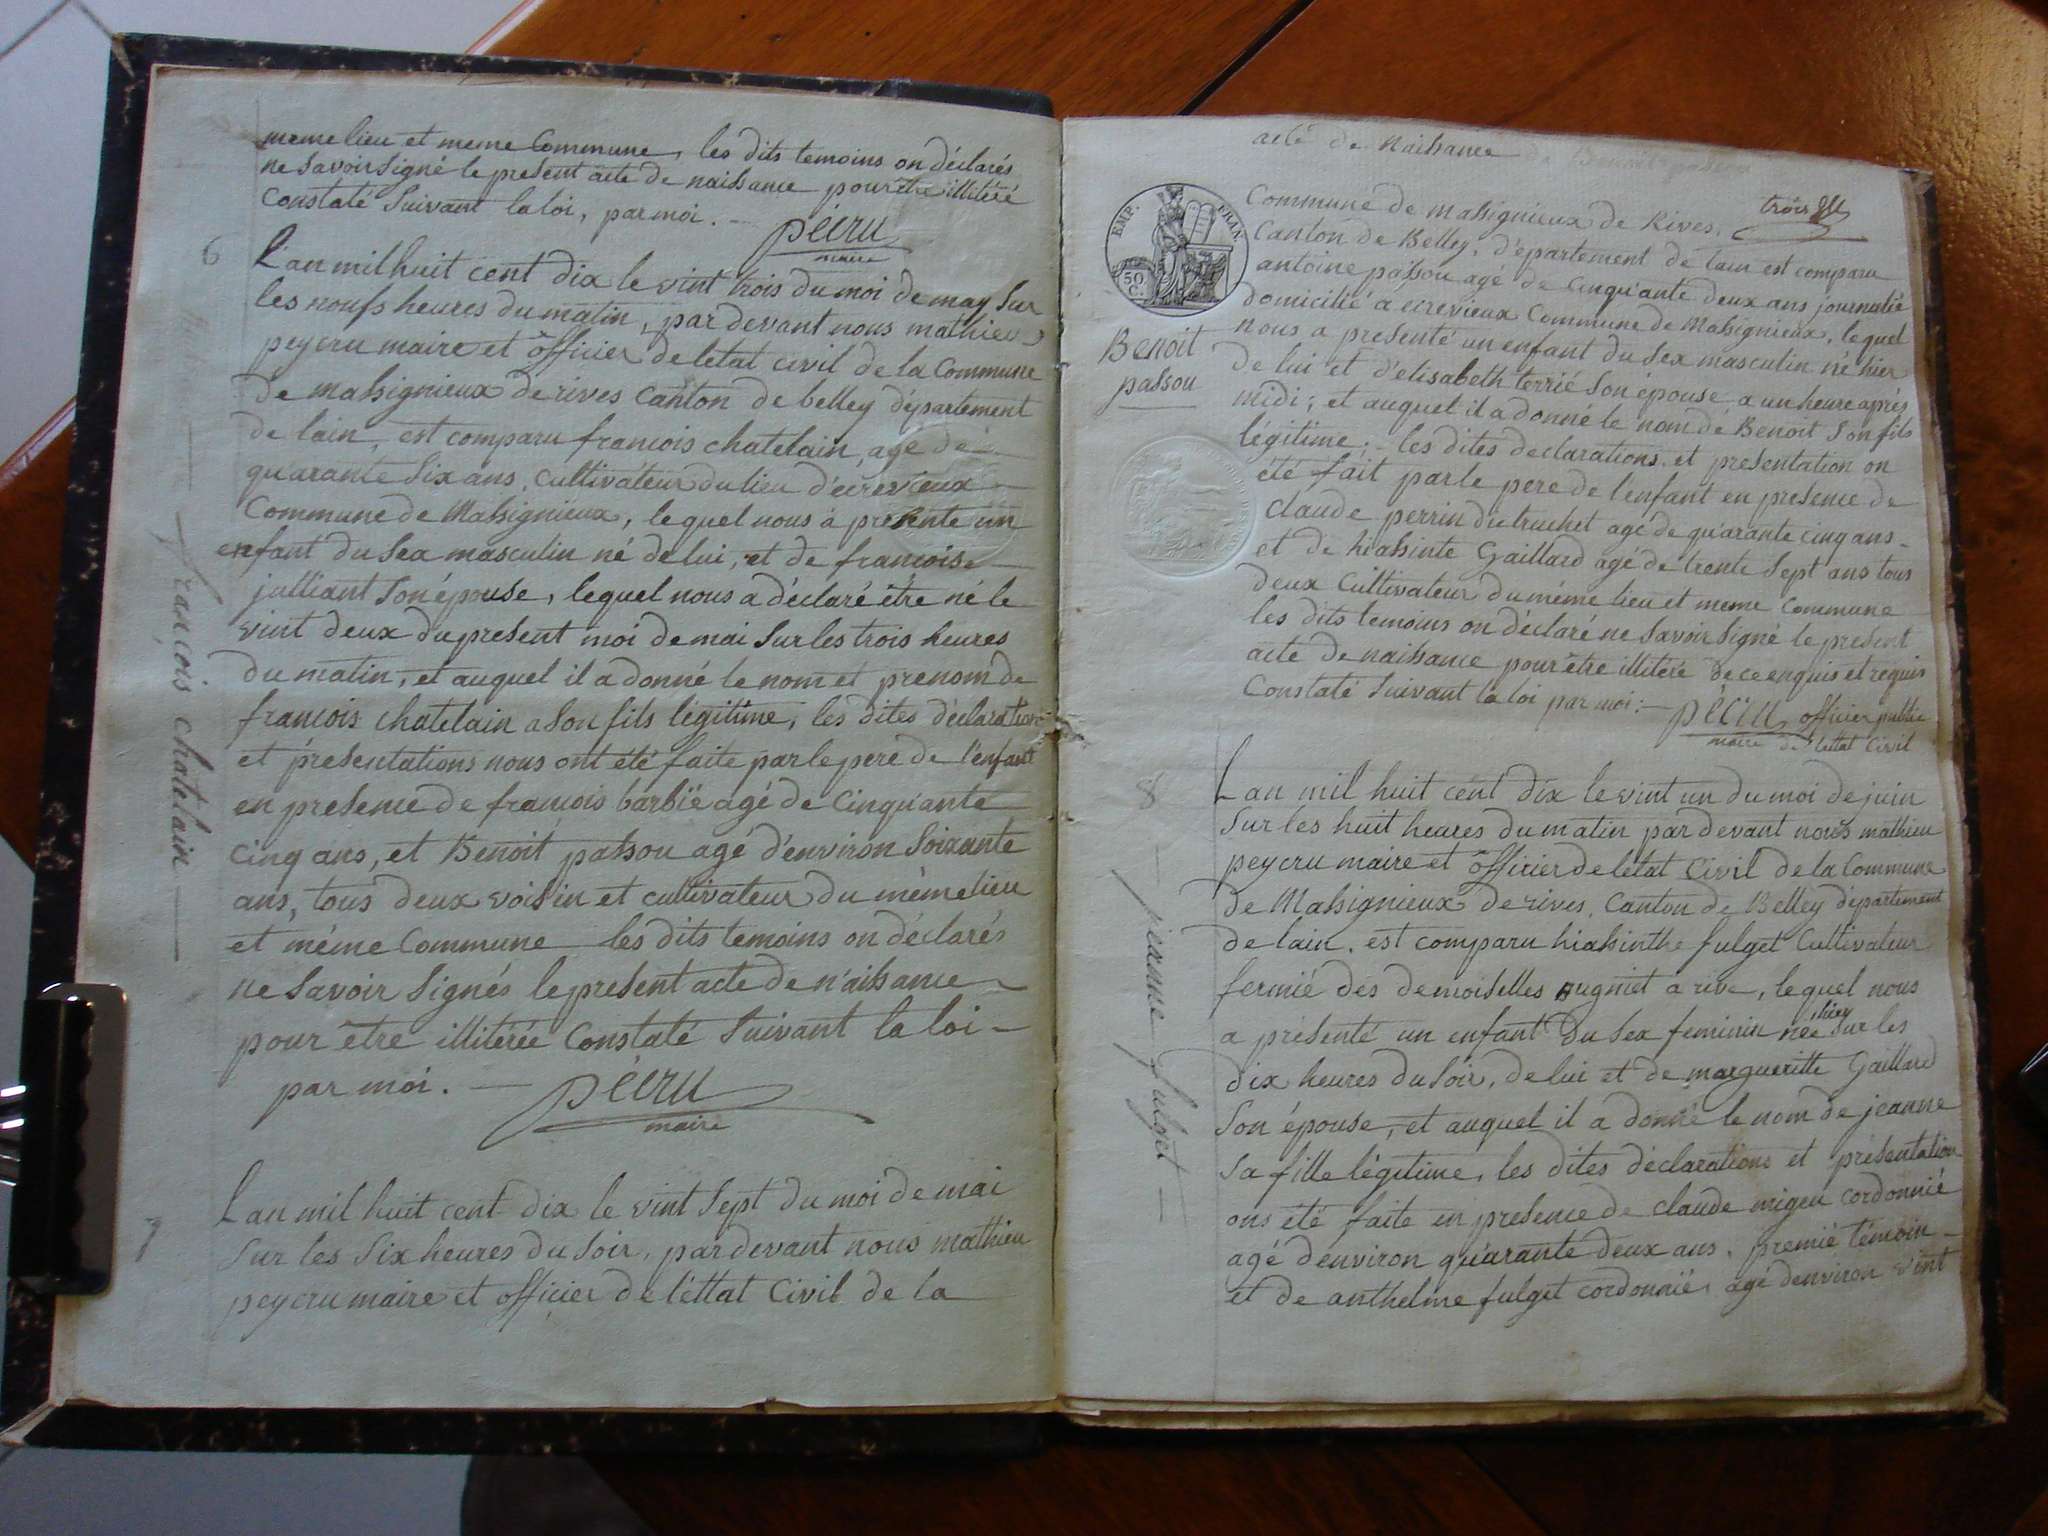 meme lieu et meme Commune, les dits temoins on déclarés
ne Savoir Signé le present acte de naissance pour être illitéré
Constaté Suivant la loi, par moi. —
pécru
maire
6
Lan mil huit cent dix le vint trois du moi de may Sur
les noufs heures du matin, par devant nous mathieu
peycru maire et officier de letat civil de la Commune
de massignieux de rives Canton de belley département
de lain, est comparu francois chatelain, agé de
quarante Six ans, Cultivateur du lieu d'ecrevieux
Commune de Massignieux, le quel nous a présenté un
enfant du Sex masculin né de lui, et de francoise
julliant Son épouse, lequel nous a déclaré être né le
vint deux du present moi de mai Sur les trois heures
du matin, et auquel il a donné le nom et prenom de
francois chatelain a Son fils légitime, les dites déclaration
et présentations nous ont été faite par le pere de l'enfant
en presence de francois barbié agé de Cinquante
Cinq ans, et Benoit passou agé d'environ Soixante
ans, tous deux voisin et cultivateur du même lieu
et même Commune les dits temoins on déclarés
ne Savoir Signés le present acte de n'aissance
pour être illitérée Constaté Suivant la loi —
par moi. —
pécru
maire
françois chatelain
7
Lan mil huit cent dix le vint Sept du moi de mai
Sur les Six heures du Soir, par devant nous mathieu
peycru maire et officier de l'éttat Civil de la
acte de Naissance
trois
EMP. FRAN.
50 C.
Commune de massignieux de Rives,
Canton de Belley, d'épartement de lain est comparu
antoine passou agé de Cinquante deux ans journalié
domicilié a ecrevieux Commune de Massignieux, lequel
nous a presenté un enfant du Sex masculin né hier
de lui et d'elisabeth terrié Son épouse a un heure après
midi, et auquel il a donné le nom de Benoit Son fils
légitime. les dites declarations et presentation on
été fait par le pere de l'enfant en presence de
Claude perrin dit truchet agé de quarante cinq ans
et de hiassinte Gaillard agé de trente Sept ans tous
deux Cultivateur du même lieu et meme Commune
les dits temoins on déclaré ne Savoir Signé le present
acte de naissance pour être illitéré de ce enquis et requis
Constaté Suivant la loi par moi: —
pécru officier public
maire de l'ettat Civil
Benoit
passou
8
Lan mil huit cent dix le vint un du moi de juin
Sur les huit heures du matin par devant nous mathieu
peycru maire et officier de letat Civil de la Commune
de Massignieux de rives, Canton de Belley département
de lain, est comparu hiassinthe fulget Cultivateur
fermié des demoiselles ougniet a rive, lequel nous
a présenté un enfant du Sex feminin née hier Sur les
dix heures du Soir, de lui et de margueritte Gaillard
Son épouse, et auquel il a donné le nom de jeanne
Sa fille légitime, les dites déclarations et présentation
ons été faite en presence de claude migeu cordonnié
agé d'environ quarante deux ans, premié témoin
et de anthelme fulget cordonnié, agé d'environ vint
jeanne fulget